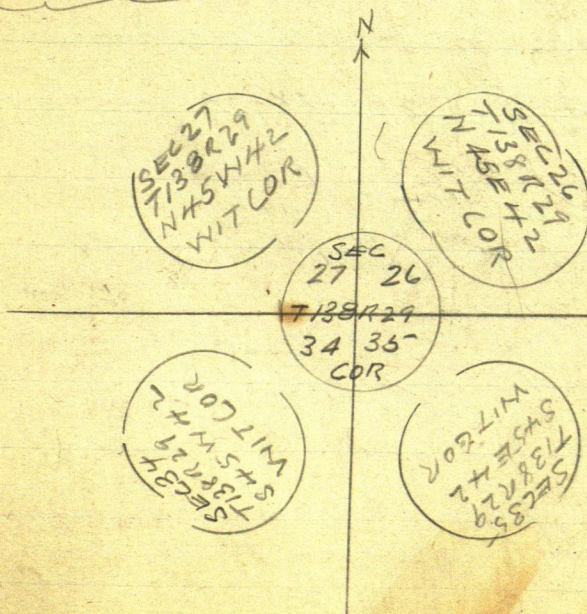 N
SEC27
T138R29
N45W42
WITCOR
SEC26
T138R29
N45E42
WITCOR
SEC
27 26
T138R29
34 35
COR
SEC34
T138R29
S45W42
WITCOR
SEC35
T138R29
S45E42
WITCOR